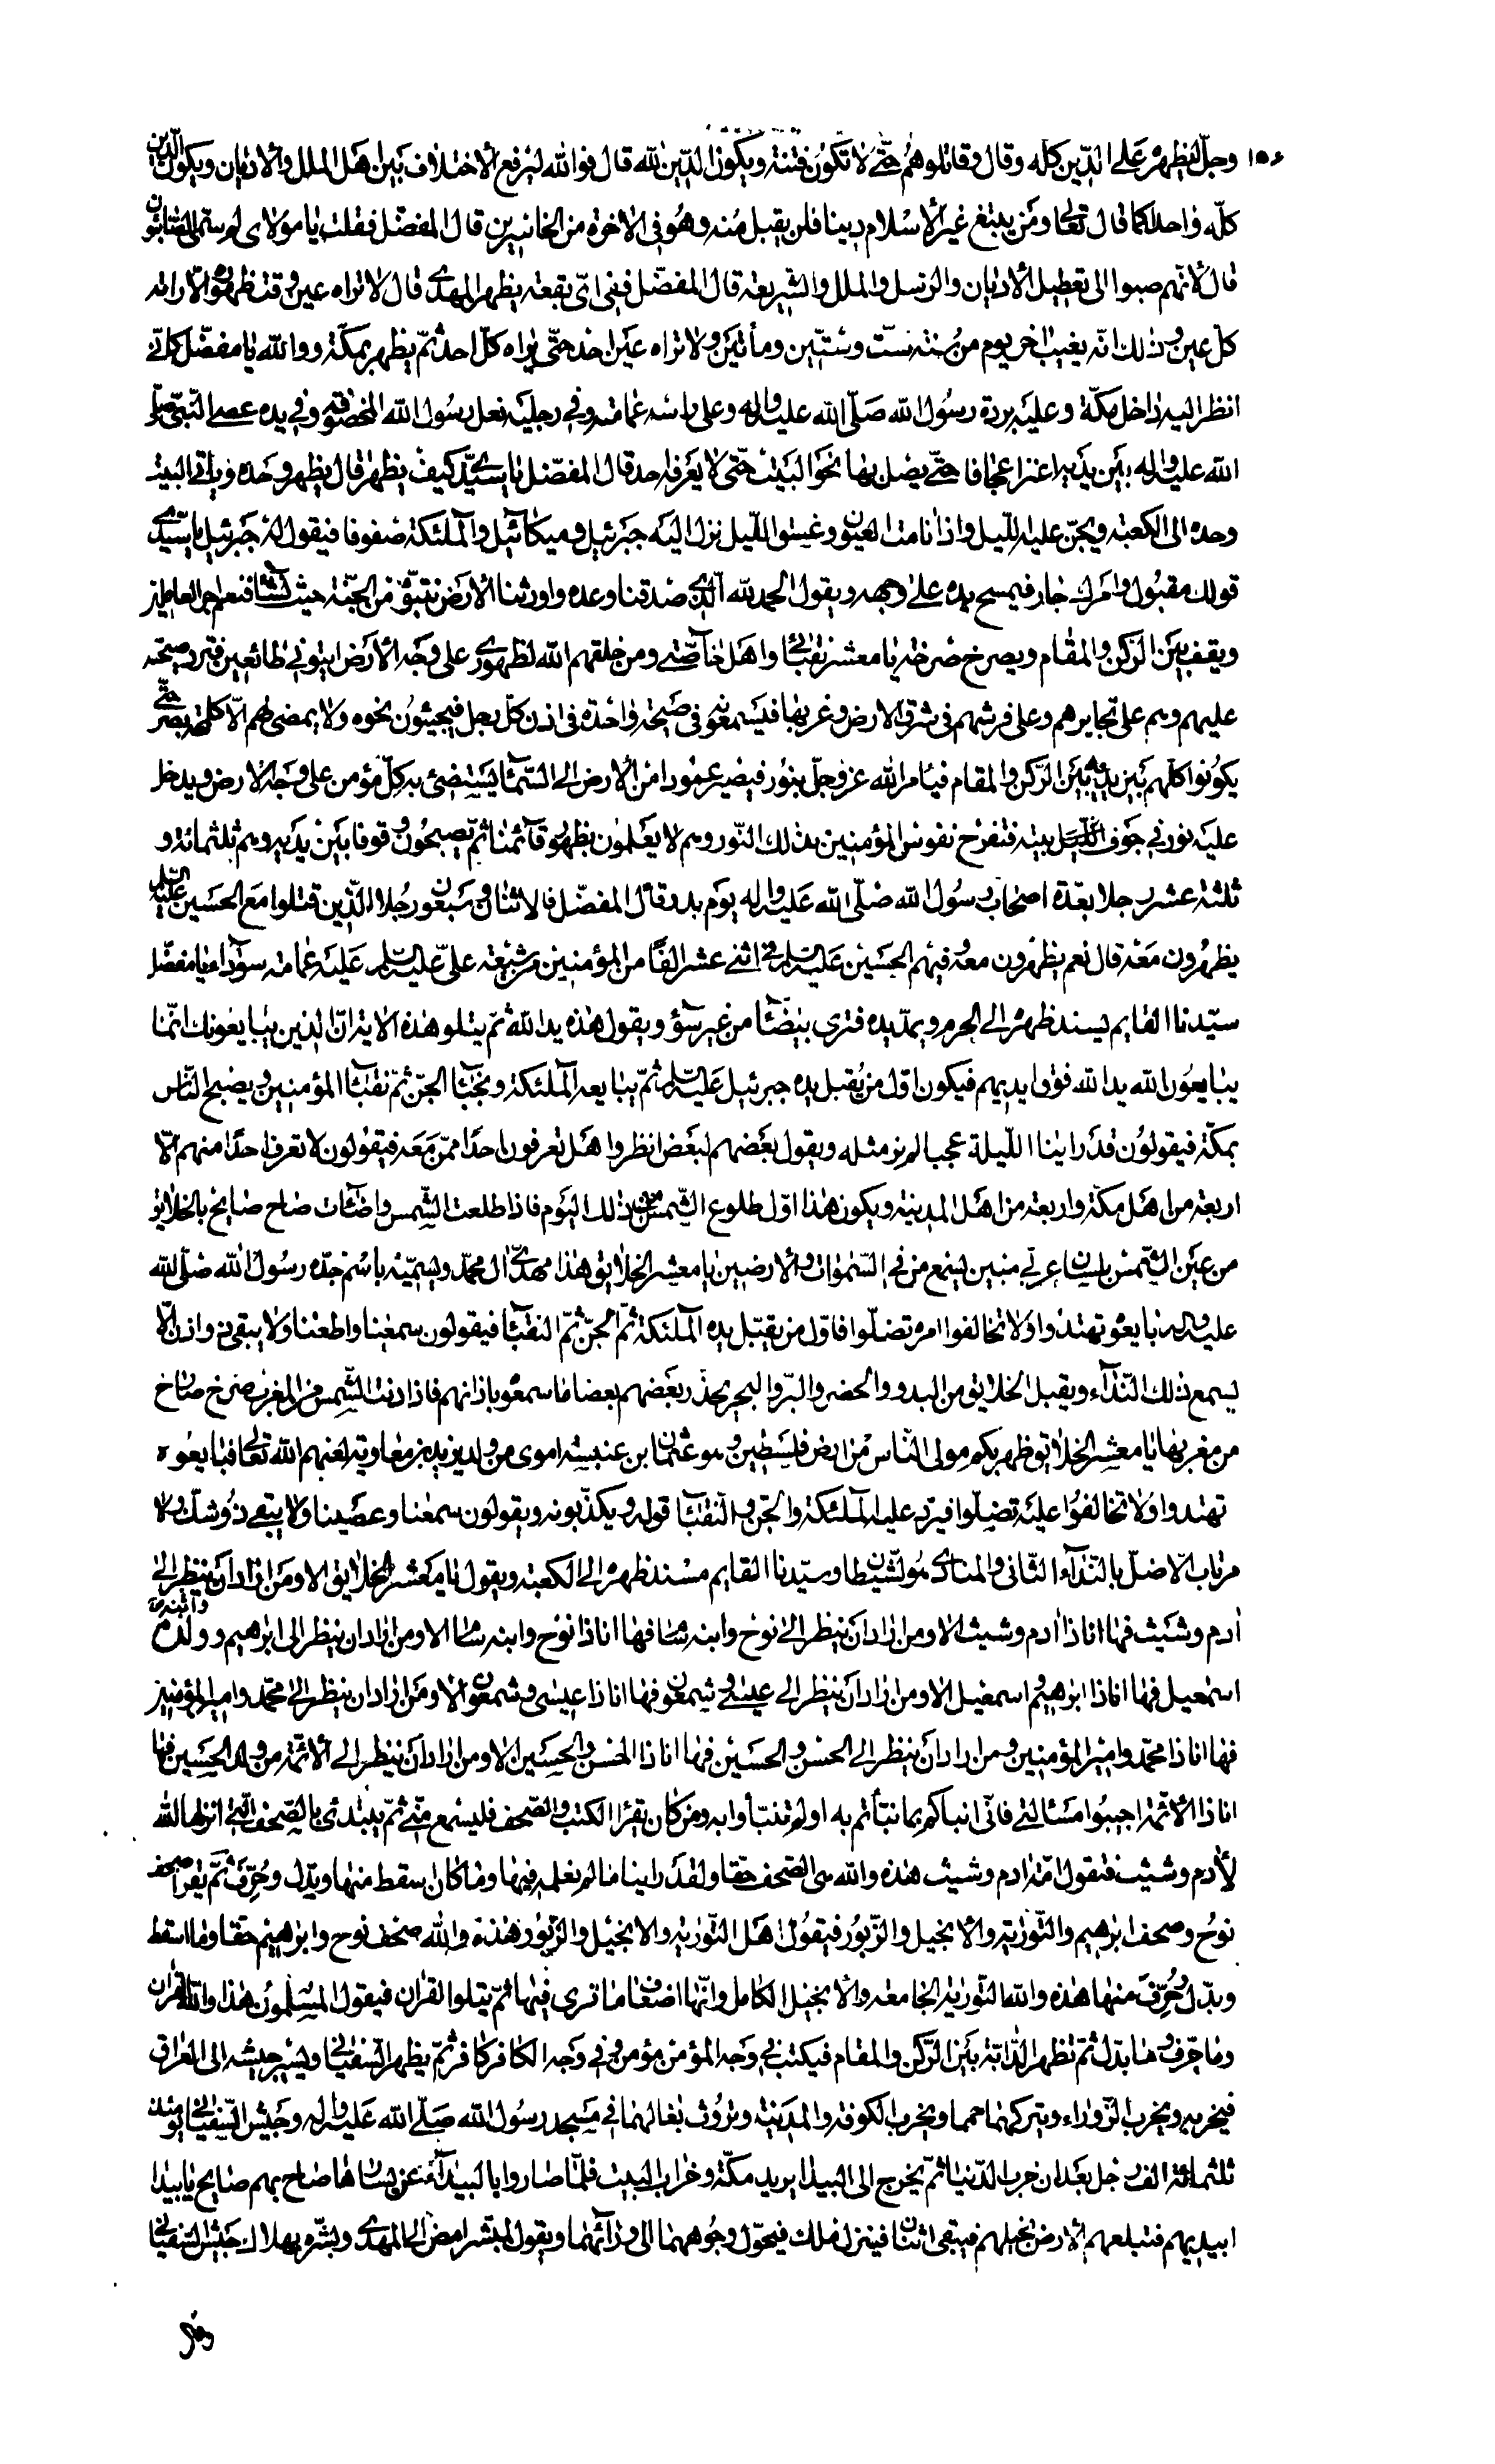 ١٥٤ وجلّ ليظهره على الدّين كله وقال وقاتلوهم حتّى لا تكون فتنة ويكون الدّين لله قال فوالله ليرفع الاختلاف بين اهل الملل والاديان ويكون الدّين
كلّه واحدا كما قال تعالى ومن يبتغ غير الاسلام دينا فلن يقبل منه وهو في الاخرة من الخاسرين قال المفضّل فقلت يا مولاى لم سمّى الصّابئون
قال لأنّهم صبوا الى تعطيل الأديان والرّسل والملل والشّريعة قال المفضّل ففى اىّ بقعة يظهر المهدى قال لا تراه عين وقت ظهوره الّا راته
كلّ عين وذلك انّه يغيب اخر يوم من سنة ستّ وستّين ومأتين ولا تراه عين احد حتّى يراه كلّ احد ثمّ يظهر بمكّة ووالله يا مفضّل كانّى
انظر اليه داخل مكّة وعليه بردة رسول الله صلّى الله عليه واله وعلى راسه عمامته وفي رجليه نعل رسول الله المخصوفة وفي يده عصى النّبىّ صلّى
الله عليه واله بين يديه اعنزا عجافا حتّى يصل بها نحو البيت حتّى لا يعرفه احد قال المفضّل يا سيّدى كيف يظهر قال يظهر وحده وياتى البيت
وحده الى الكعبة ويجنّ عليه اللّيل واذا نامت العيون وغسق اللّيل نزل اليه جبرئيل وميكائيل والملئكة صفوفا فيقول له جبرئيل يا سيّدى
قولك مقبول وامرك جار فيمسح يده على وجهه ويقول الحمد لله الّذى صدقنا وعده واورثنا الارض نتبوّء من الجنّة حيث نشاء فنعم اجر العاملين
ويقف بين الرّكن والمقام ويصرخ صرخة يا معشر نقبائى واهل خاصّتى ومن خلقهم الله لظهورى على وجه الأرض ايتونى طائعين فترد صيحته
عليهم وهم على محاريبهم وعلى فرشهم في شرق الارض وغربها فيسمعونه في صيحة واحدة في اذن كلّ رجل فيجيئون نحوه ولا يمضى لهم الّا كلمحة بصر حتّى
يكونوا كلّهم بين يديه بين الرّكن والمقام فيامر الله عز وجلّ بنور فيصير عمودا من الأرض الى السّماء يستضئ به كلّ مؤمن على وجه الارض ويدخل
عليه نور في جوف اللّيل بيته فتفرح نفوس المؤمنين بذلك النّور وهم لا يعلمون بظهور قائمنا ثمّ يصبحون وقوفا بين يديه وهم ثلثمائة و
ثلثة عشر رجلا بعدّة اصحاب رسول الله صلّى الله عليه واله يوم بدر وقال المفضّل فالاثنان وسبعون رجلا الّذين قتلوا مع الحسين عليه السّلم
يظهرون معه قال نعم يظهرون معه فيهم الحسين عليه السّلم في اثنى عشر الفًا من المؤمنين من شيعة علىّ عليه السّلم عليه عمامة سوداء يا مفضّل
سيّدنا القايم يسند ظهره الى الحرم ويمدّ يده فترى بيضاء من غير سؤ ويقول هذه يد الله ثمّ يتلو هذه الاية انّ الذين يبايعونك انّما
يبايعون الله يد الله فوق ايديهم فيكون اوّل من يقبل يده جبرئيل عليه السّلم ثمّ يبايعه الملئكة ونجباء الجنّ ثمّ نقباء المؤمنين ويصبح النّاس
بمكّة فيقولون قد راينا اللّيلة عجبا لم نر مثله ويقول بعضهم لبعض انظروا هل تعرفون احدًا ممّن معه فيقولون لا نعرف احدًا منهم الّا
اربعة من اهل مكّة واربعة من اهل المدينة ويكون هذا اوّل طلوع الشّمس من ذلك اليوم فاذا طلعت الشّمس واضائت صاح صايح بالخلايق
من عين الشّمس بلسان عربي مبين يسمع من في السّموات والارضين يا معشر الخلايق هذا مهدىّ ال محمّد ويسمّيه باسم جدّه رسول الله صلّى الله
عليه واله بايعوه تهتدوا ولا تخالفوا امره تضلّوا فاوّل من يقبّل يده الملئكة ثمّ الجنّ ثمّ النقباء فيقولون سمعنا واطعنا ولا يبقى ذو اذن الّا
يسمع ذلك النّداء ويقبل الخلايق من البدو والحضر والبرّ والبحر يحدّث بعضهم بعضا ما سمعوا باذانهم فاذا دنت الشّمس من المغرب صرخ صارخ
من مغربها يا معشر الخلايق ظهر بكم مولى النّاس من ارض فلسطين وهو عثمان ابن عنبسة اموى من ولد يزيد بن معاوية لعنهم الله تعالى فبايعوه
تهتدوا ولا تخالفوا عليه تضلّوا فيردّ عليه الملئكة والجنّ والنقباء قوله ويكذّبونه ويقولون سمعنا وعصينا ولا يبقى ذو شك ولا
مرتاب الّا ضلّ بالنّداء الثّانى والمنادى هو الشّيطان وسيّدنا القايم مسند ظهره الى الكعبة ويقول يا معشر الخلايق الا ومن اراد ان ينظر الى
ادم وشيث فها انا ذا ادم وشيث الا ومن اراد ان ينظر الى نوح وابنه سام فها انا ذا نوح وابنه سام الا ومن اراد ان ينظر الى ابرهيم وولده
اسمعيل فها انا ذا ابرهيم واسمعيل الا ومن اراد ان ينظر الى عيسى وشمعون فها انا ذا عيسى وشمعون الا ومن اراد ان ينظر الى محمّد وامير المؤمنين
فها انا ذا محمّد وامير المؤمنين ومن اراد ان ينظر الى الحسن والحسين فها انا ذا الحسن والحسين الا ومن اراد ان ينظر الى الائمّة من ولد الحسين فها
انا ذا الائمّة اجيبوا مسالتى فانّى انباكم بما نبّأتم به اولم تنبّأوا به ومن كان يقرا الكتب والصّحف فليسمع منّى ثمّ يبتدئ بالصّحف الّتى انزلها الله
لأدم وشيث فتقول امّة ادم وشيث هذه والله هى الصّحف حقا ولقد راينا ما لم نعلمه فيها وما كان اسقط منها وبدّل وحرّف ثمّ يقرا صحف
نوح وصحف ابرهيم والتّورية والانجيل والزّبور فيقول اهل التّورية والانجيل والزّبور هذه والله صحف نوح وابرهيم حقا وما اسقط
وبدّل وحرّف منها هذه والله التّورية الجامعة والانجيل الكامل وانّها اضعاف ما ترى فيها ثمّ يتلوا القران فيقول المسلمون هذا والله القران
وما حرّف وما بدّل ثمّ تظهر الدّابّة بين الرّكن والمقام فيكتب في وجه المؤمن مؤمن وفى وجه الكافر كافر ثمّ يظهر السّفيانى ويسير جيشه الى العراق
فيخربه ويخرب الزّوراء ويتركهما حمما ويخرب الكوفة والمدينة وتروث بغالهما في مسجد رسول الله صلّى الله عليه واله وجيش السّفيانى يومئذ
ثلثمائة الف رجل بعد ان خرب الدّنيا ثمّ يخرج الى البيدا يريد مكّة وخراب البيت فلمّا صاروا بالبيداء عرّسا بها صاح بهم صايح يا بيدا
ابيديهم فتبلعهم الارض بخيلهم فيبقى اثنان فينزل ملك فيحوّل وجوههما الى ورائهما ويقول للمبشّر امض الى المهدى وبشّره بهلاك جيش السّفيانى